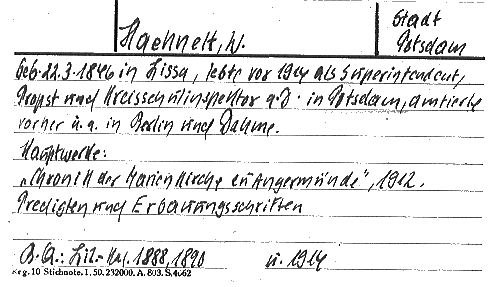 Haehnelt, W.
Stadt
Potsdam
Geb. 22.3.1846 in Lissa, lebte vor 1914 als Superintendent,
Propst und Kreisschulinspektor a.D. in Potsdam, amtierte
vorher u.a. in Berlin und Dahme.
Hauptwerke:
"Chronik der Marienkirche in Angermünde", 1912.
Predigten und Erbauungsschriften
B.Q.: Lit.-Kal. 1888, 1890 u. 1914
Reg. 10 Stichnote. 1. 50. 232000. A. 803. S. 4062